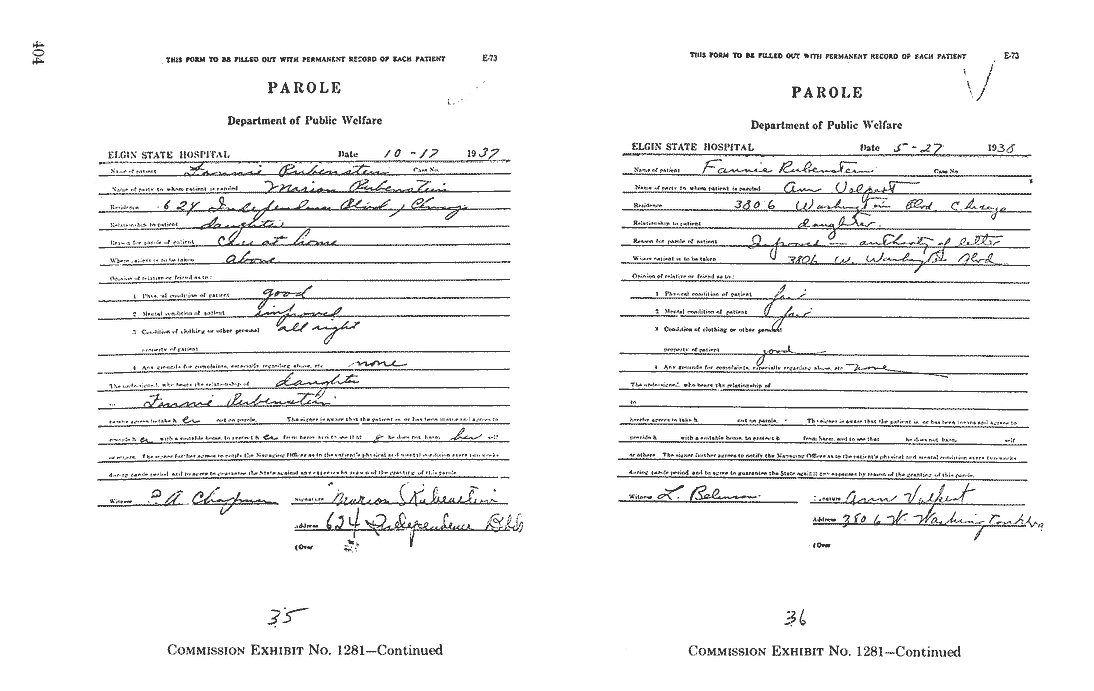 404
THIS FORM TO BE FILLED OUT WITH PERMANENT RECORD OF EACH PATIENT E-73
PAROLE
Department of Public Welfare
ELGIN STATE HOSPITAL Date 10-17 1937
Name of patient Fannie Rubenstein Case No.
Name of party to whom patient is paroled Marion Rubenstein
Residence 624 Independence Blvd, Chicago
Relationship to patient daughter
Reason for parole of patient Care at home
Where patient is to be taken above
Opinion of relative or friend as to:
1 Physical condition of patient good
2 Mental condition of patient improved
3 Condition of clothing or other personal all right
property of patient
4 Any grounds for complaints, especially regarding abuse, etc none
The undersigned, who bears the relationship of daughter
to Fannie Rubenstein
hereby agrees to take h er out on parole. The signer is aware that the patient is, or has been insane and agrees to
provide h er with a suitable home, to protect h er from harm and to see that s he does not harm her self
or others. The signer further agrees to notify the Managing Officer as to the patient's physical and mental condition every two weeks
during parole period and to agree to guarantee the State against any expenses by reason of the granting of this parole
Witness A. Chapman Signature Marion Rubenstein
Address 624 Independence
(Over
35
COMMISSION EXHIBIT No. 1281—Continued
THIS FORM TO BE FILLED OUT WITH PERMANENT RECORD OF EACH PATIENT E-73
PAROLE
Department of Public Welfare
ELGIN STATE HOSPITAL Date 5-27 1938
Name of patient Fannie Rubenstein Case No.
Name of party to whom patient is paroled Ann Volpert
Residence 3806 Washington Blvd, Chicago
Relationship to patient daughter
Reason for parole of patient Improved — authority of letter
Where patient is to be taken 3806 W. Washington Blvd
Opinion of relative or friend as to:
1 Physical condition of patient fair
2 Mental condition of patient fair
3 Condition of clothing or other personal
property of patient good
4 Any grounds for complaints, especially regarding abuse, etc none
The undersigned, who bears the relationship of
to
hereby agrees to take h out on parole. The signer is aware that the patient is, or has been insane and agrees to
provide h with a suitable home, to protect h from harm, and to see that he does not harm self
or others. The signer further agrees to notify the Managing Officer as to the patient's physical and mental condition every two weeks
during parole period and to agree to guarantee the State against any expenses by reason of the granting of this parole.
Witness L. Belinson Signature Ann Volpert
Address 3806 W. Washington
(Over
36
COMMISSION EXHIBIT No. 1281—Continued